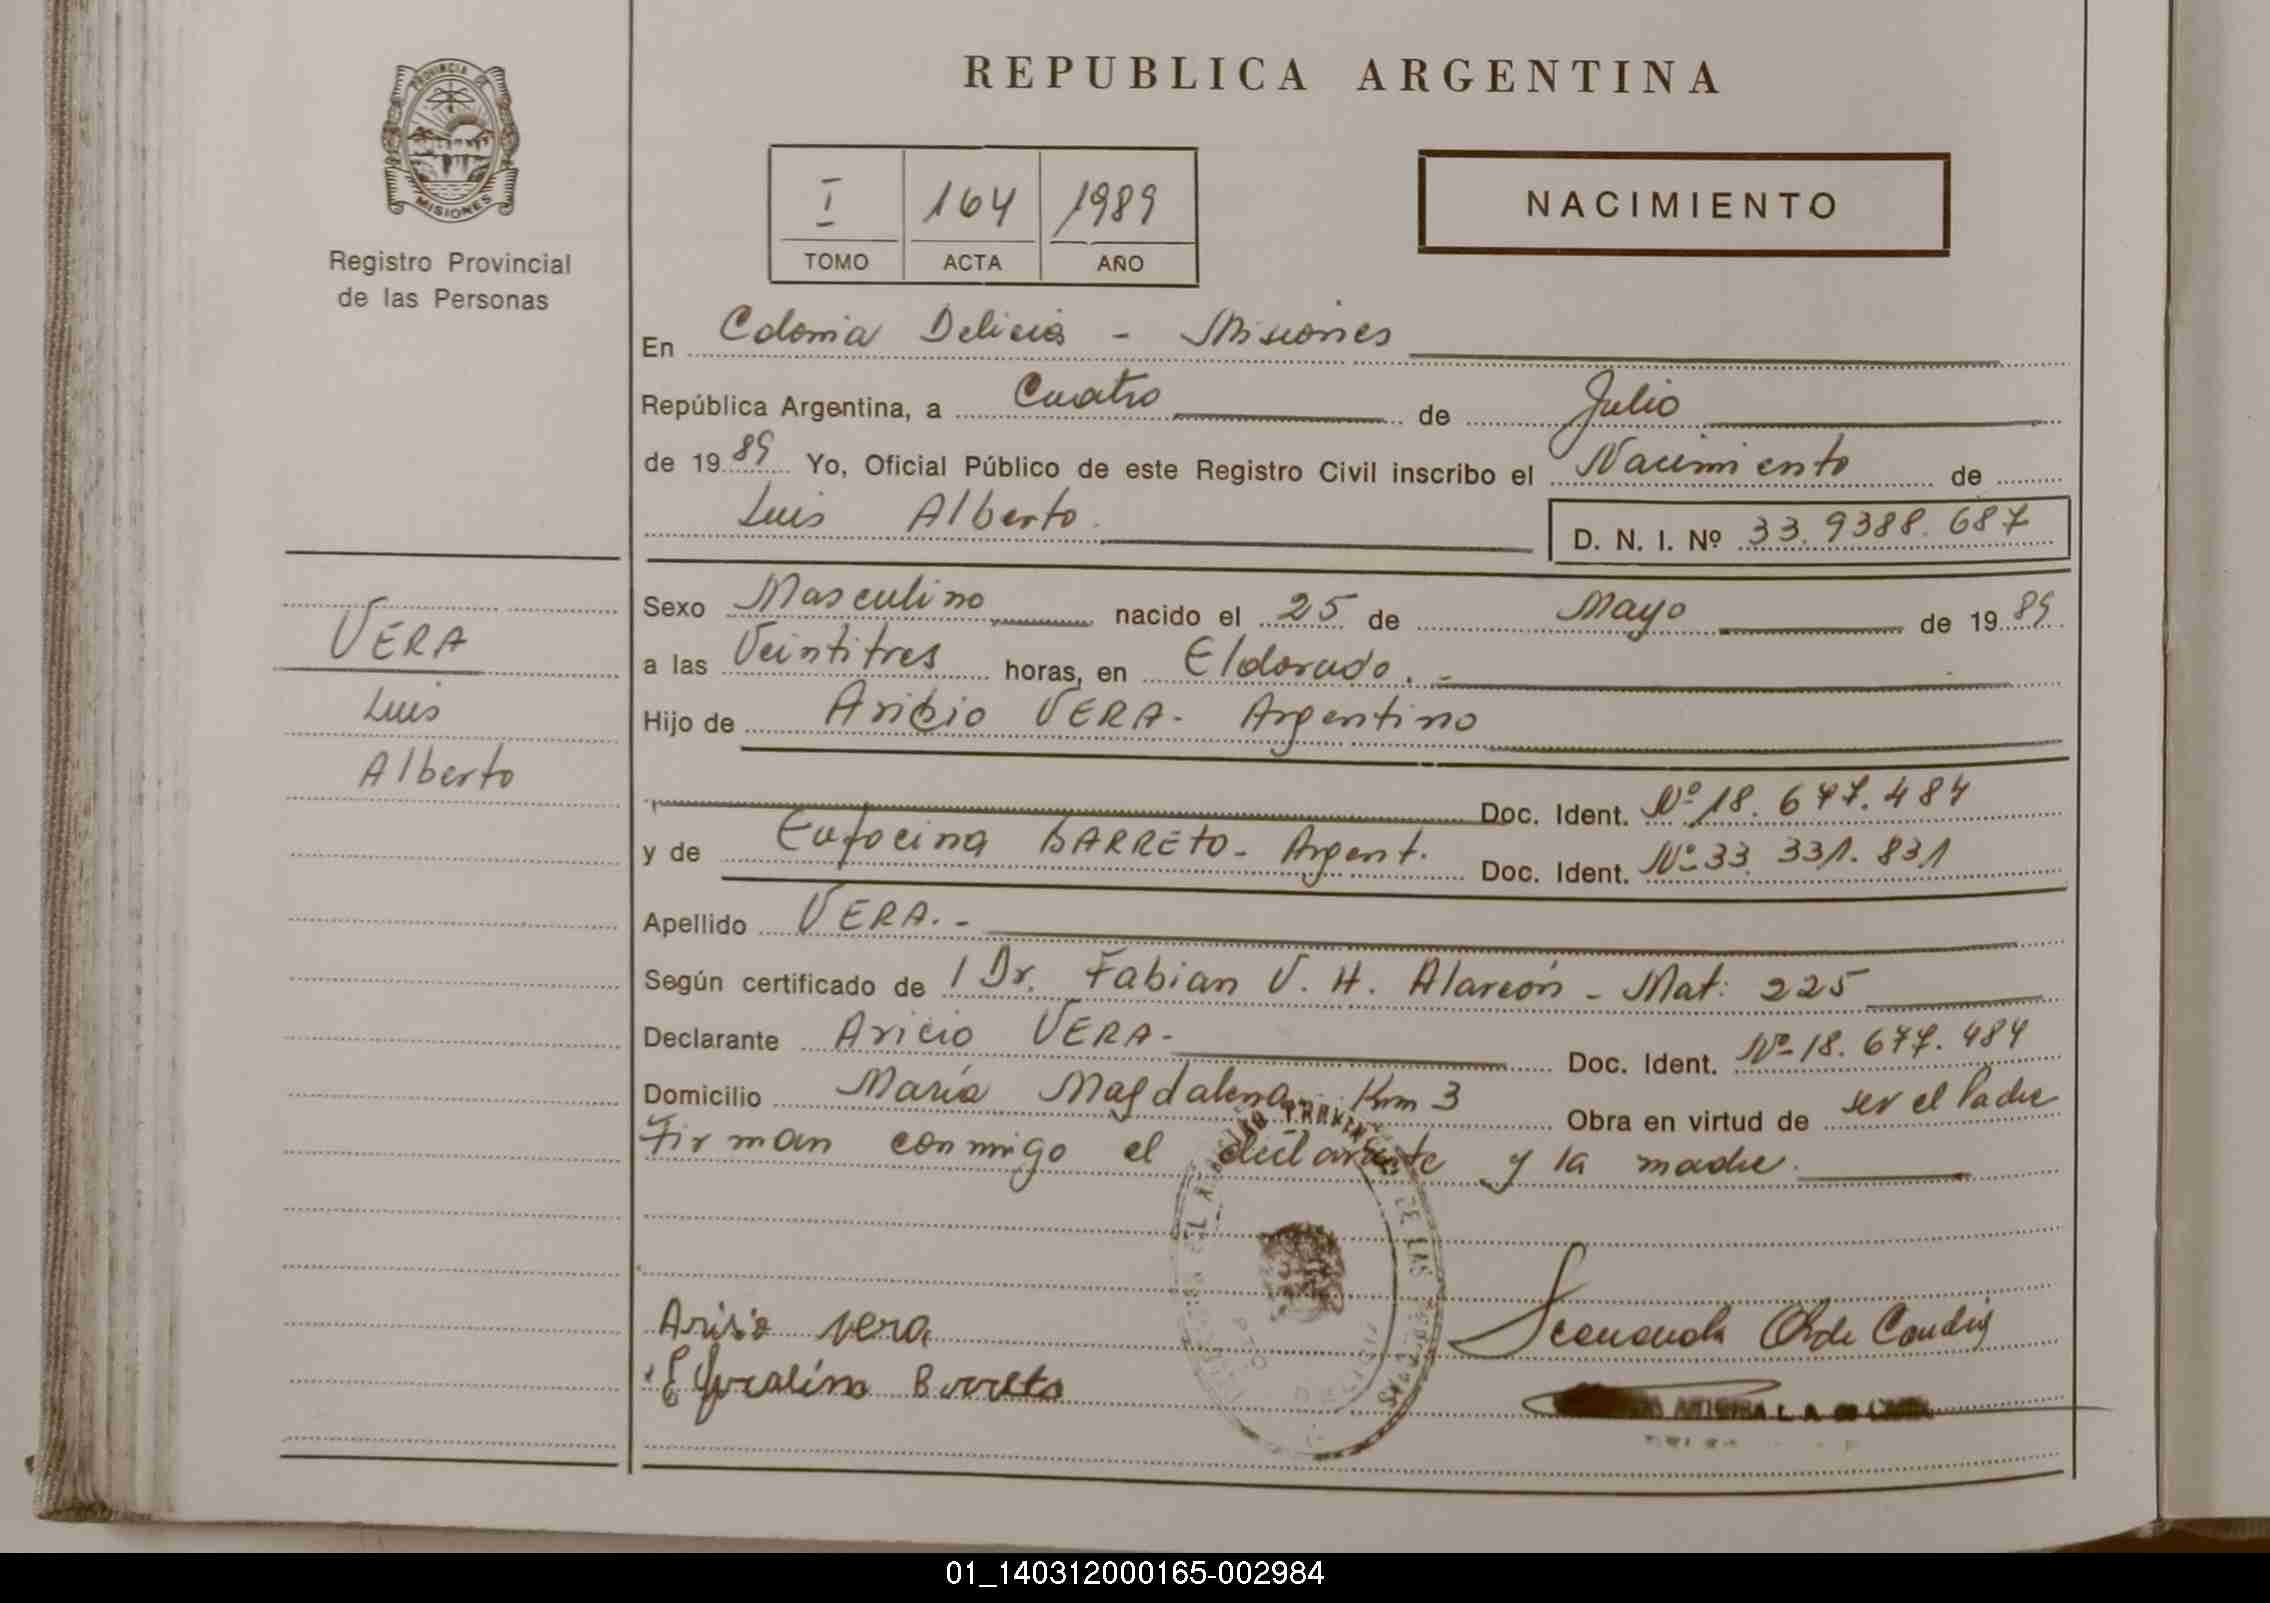 PROVINCIA DE
MISIONES
Registro Provincial
de las Personas
REPUBLICA ARGENTINA
I 164 1989
TOMO ACTA AÑO
NACIMIENTO
En Colonia Delicia - Misiones
República Argentina, a Cuatro de Julio
de 1989 Yo, Oficial Público de este Registro Civil inscribo el Nacimiento de
Luis Alberto.
D. N. I. Nº 33.9388.687
VERA
Luis
Alberto
Sexo Masculino nacido el 25 de Mayo de 1989
a las Veintitres horas, en Eldorado. -
Hijo de Aricio VERA - Argentino
Doc. Ident. Nº 18.677.484
y de Eufocina BARRETO - Argent. Doc. Ident. Nº 33.331.831
Apellido VERA. -
Según certificado de / Dr. Fabian V. H. Alarcón - Mat: 225
Declarante Aricio VERA - Doc. Ident. Nº 18.677.484
Domicilio María Magdalena - Km 3 Obra en virtud de ser el Padre
Firman conmigo el declarante y la madre.
DE LAS
Arisio vera
Barreto